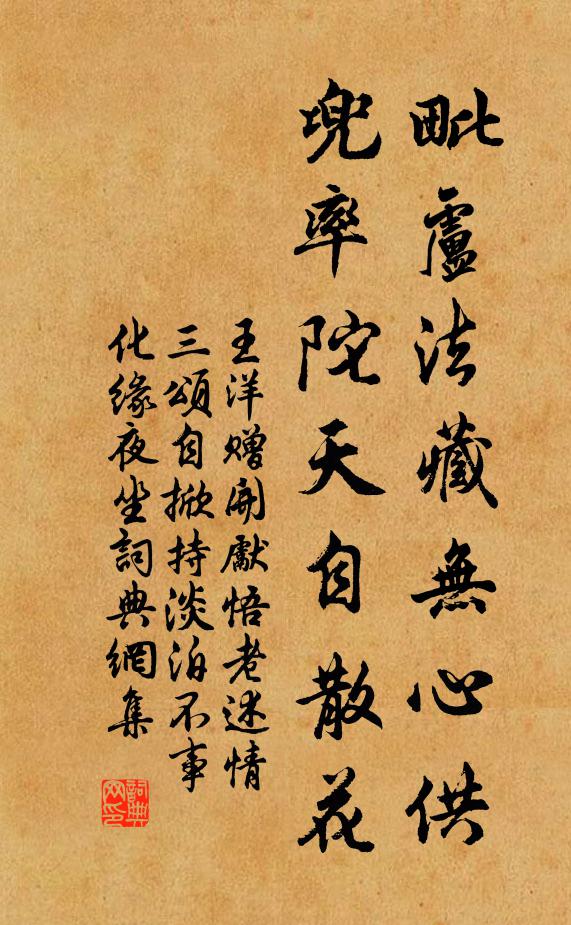 毗盧法藏無心供
兜率陀天自散花
王洋贈開獻悟老述情
三頌自掀持淡泊不事
化緣夜坐詞典網集
詞典網印